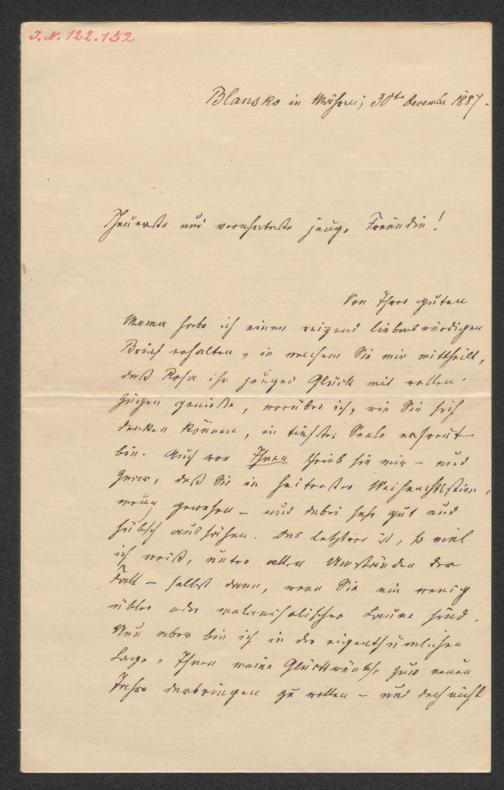 J.N. 122.152
Blansko in Mähren, 30ten December 1887.
Theuerste und verehrteste junge Freundin!
Von Ihrer guten
Mama habe ich einen reizend liebenswürdigen
Brief erhalten, in welchem Sie mir mittheilt,
daß Rosa ihr junges Glück mit vollen
Zügen genieße, worüber ich, wie Sie sich
denken können, in tiefster Seele erfreut
bin. Auch von Ihnen schrieb sie mir – und
zwar, daß Sie in heiterster Weihnachtsstim-
mung gewesen – und dabei sehr gut und
hübsch aussähen. Das Letztere ist, so viel
ich weiß, unter allen Umständen der
Fall – selbst dann, wenn Sie ein wenig
übler oder melancholischer Laune sind.
Nun aber bin ich in der eigenthümlichen
Lage, Ihnen meine Glückwünsche zum neuen
Jahre darbringen zu wollen – und doch nicht